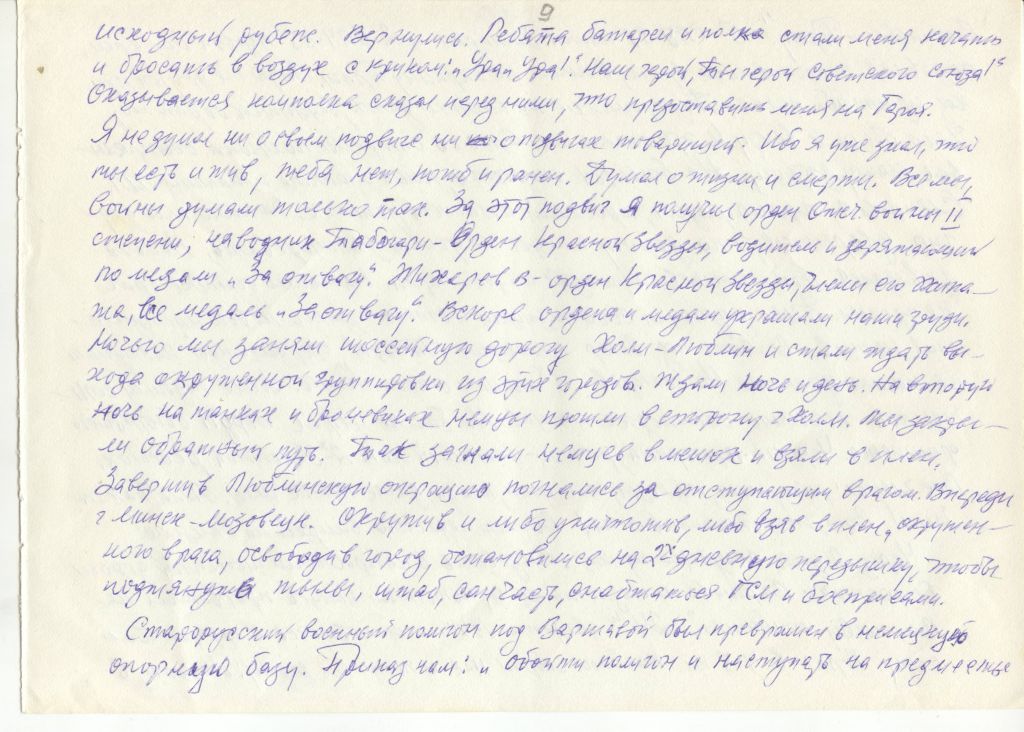 9
исходный рубеж. Вернулись. Ребята батареи и полка стали меня качать
и бросать в воздух с криком: „Ура! Ура!". Наш герой, Ты герой Советского Союза!"
Оказывается комполка сказал перед ними, что предоставить меня на Героя.
Я не думал ни о своём подвиге ни о подвигах товарищей. Ибо я уже знал, что
ты есть и жив, тебя нет, погиб и ранен. Думал о жизни и смерти. Все мы,
войны думали только так. За этот подвиг я получил орден Отеч войны II
степени, наводчик Табагари - Орден Красной Звезды, водитель и заряжающий
по медали „За отвагу". Жихарев В - орден Красной Звезды, члены его экипа-
жа, все медаль „За отвагу". Вскоре ордена и медали украшали наши груди.
Ночью мы заняли шоссейную дорогу Холм-Люблин и стали ждать вы-
хода окруженной группировки из этих городов. Ждали ночь и день. На вторую
ночь на танках и броневиках немцы прошли в сторону г Холм. Мы закры-
ли обратный путь. Так загнали немцев в мешок и взяли в плен.
Завершив Люблинскую операцию погнались за отступающим врагом. Впереди
г Минск-Мозовецк. Окружив и либо уничтожив, либо взяв в плен, окружен-
ного врага, освободив город, остановились на 2х дневную передышку, чтобы
подтянуть тылы, штаб, санчасть, снабжаться ГСМ и боеприпасами.
Старорусский военный полигон под Варшавой был превращен в немецкую
опорную базу. Приказ нам: „ обойти полигон и наступать на предместье